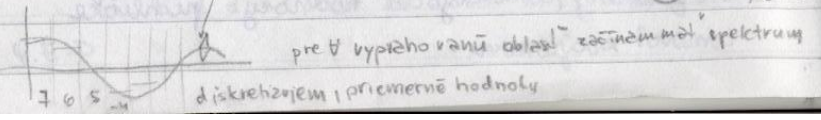 pre ∀ vyprahovanú oblasť začínam mať spektrum
7 6 5 4
diskretizujem, priemerné hodnoty